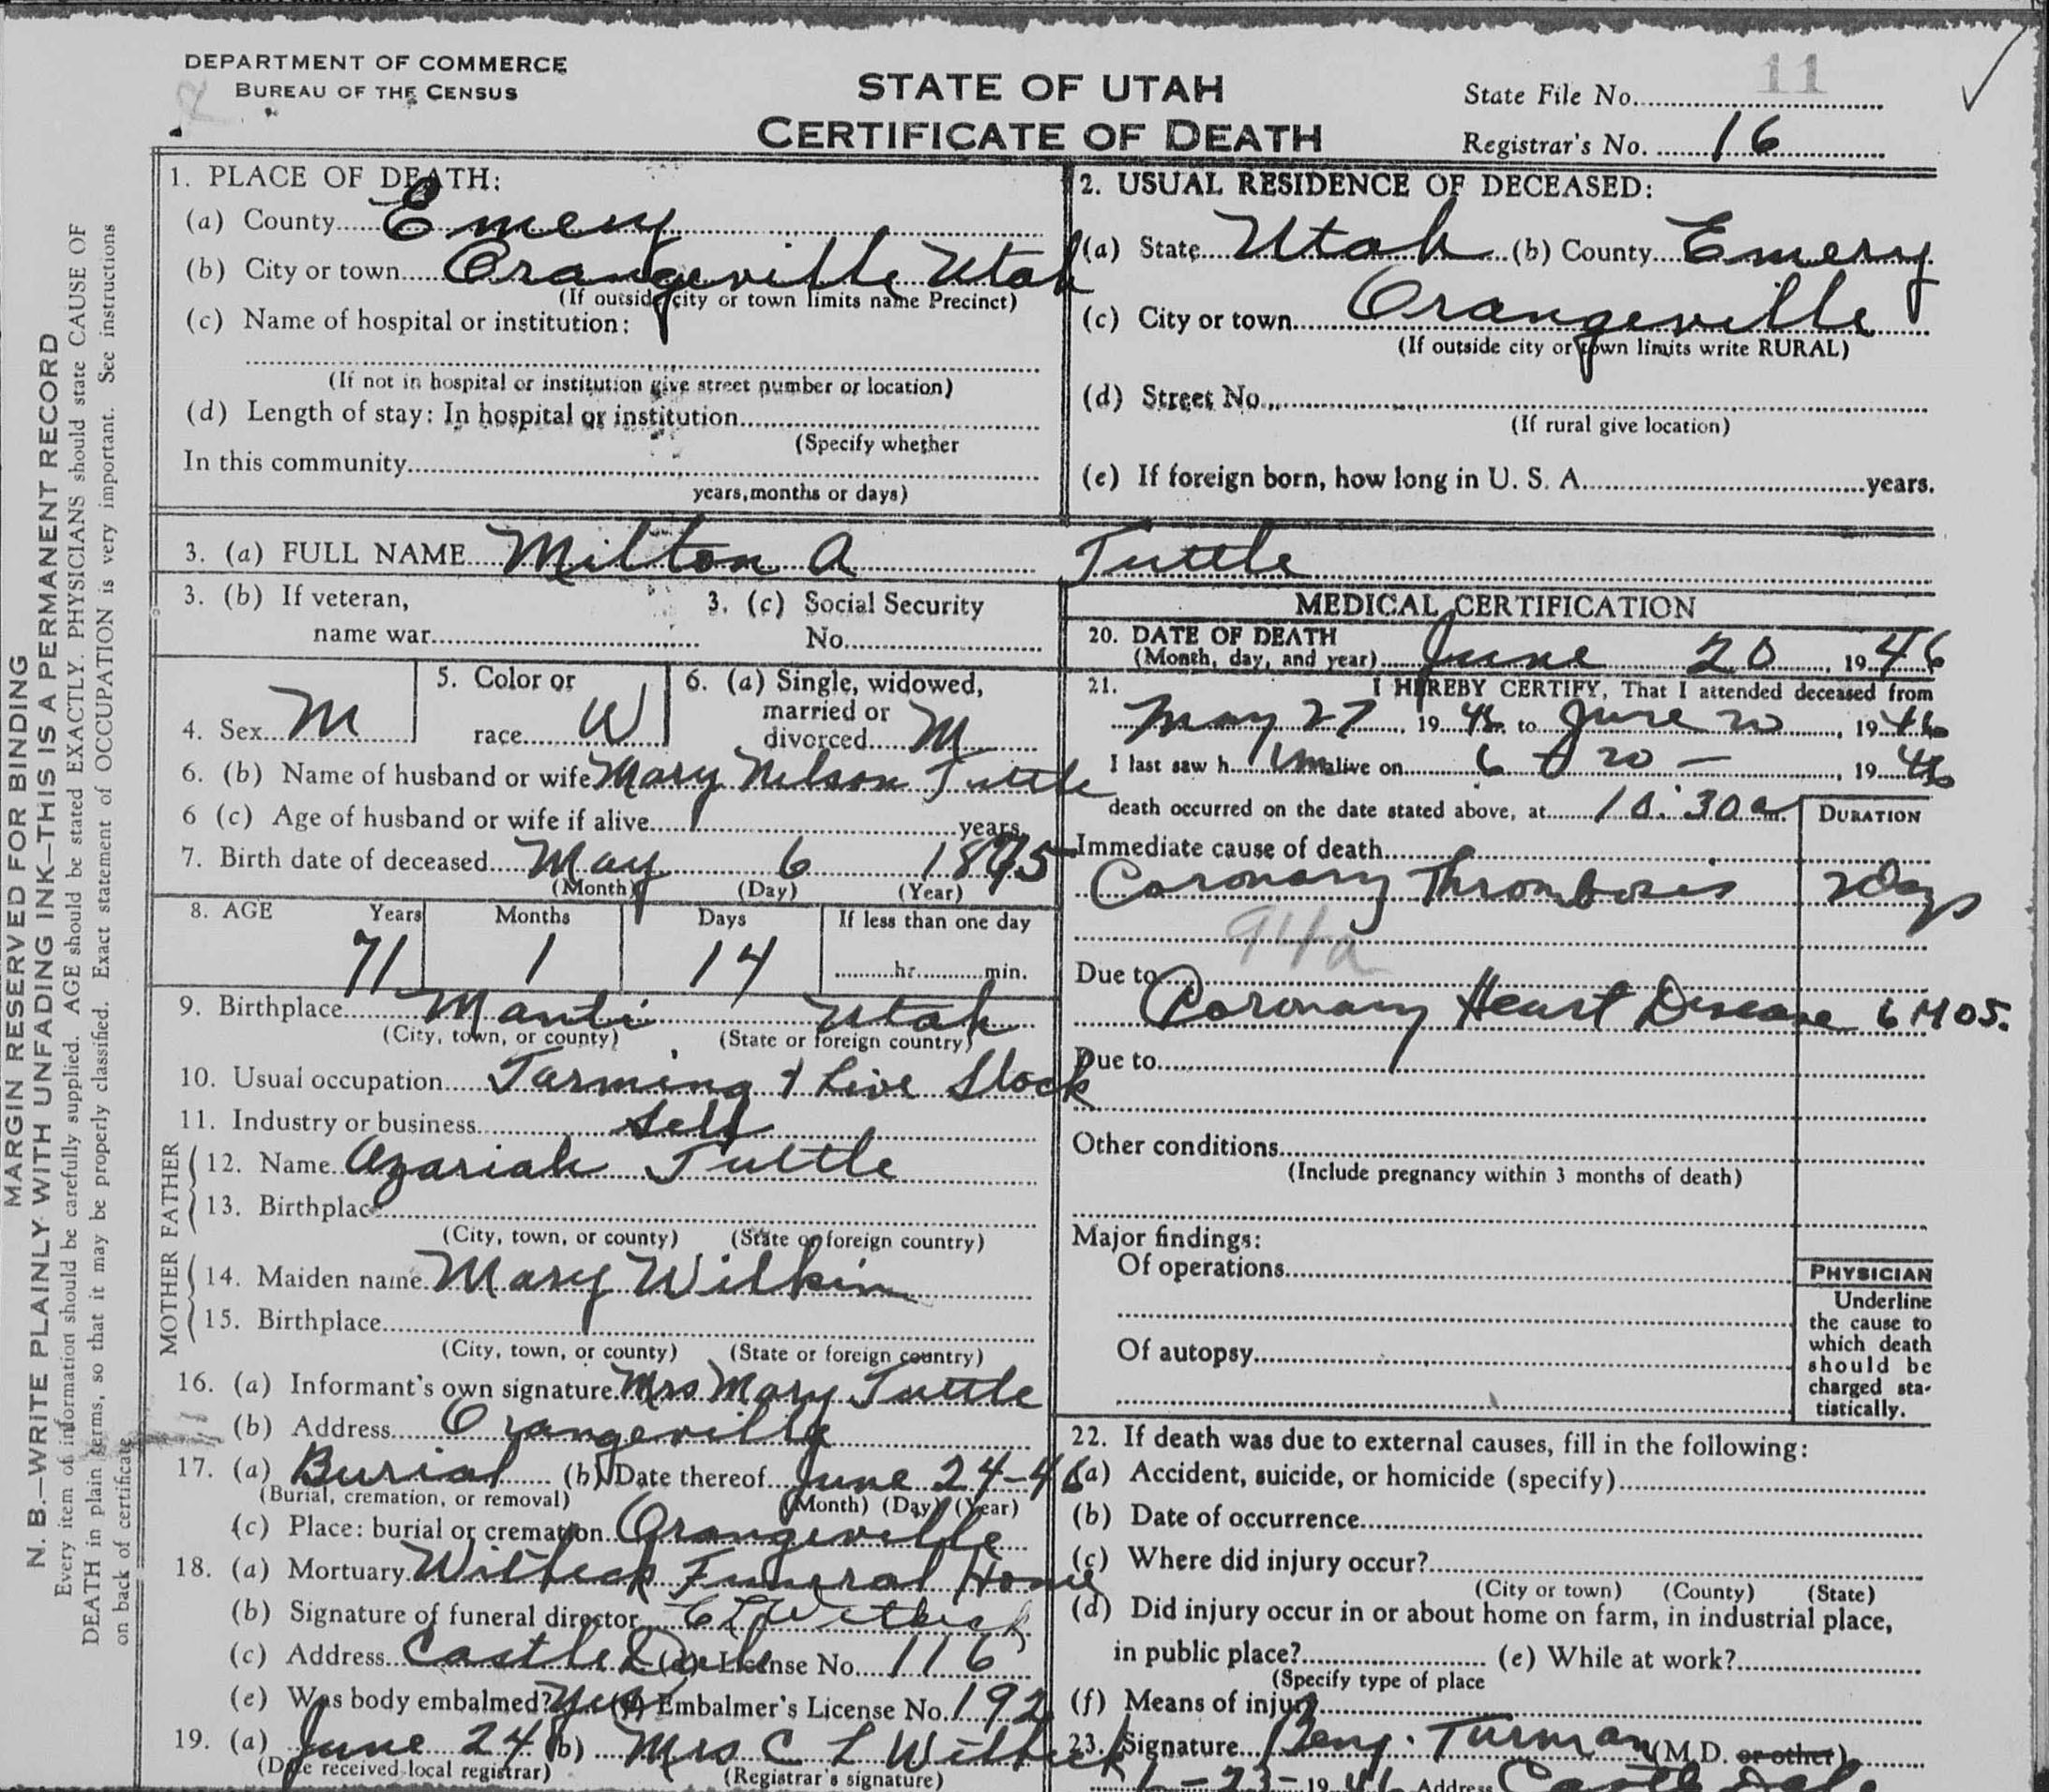 DEPARTMENT OF COMMERCE
BUREAU OF THE CENSUS
STATE OF UTAH
CERTIFICATE OF DEATH
State File No. 11
Registrar's No. 16
MARGIN RESERVED FOR BINDING
N. B.—WRITE PLAINLY WITH UNFADING INK—THIS IS A PERMANENT RECORD
Every item of information should be carefully supplied. AGE should be stated EXACTLY. PHYSICIANS should state CAUSE OF
DEATH in plain terms, so that it may be properly classified. Exact statement of OCCUPATION is very important. See instructions
on back of certificate
1. PLACE OF DEATH:
(a) County Emery
(b) City or town Orangeville Utah
(If outside city or town limits name Precinct)
(c) Name of hospital or institution:
(If not in hospital or institution give street number or location)
(d) Length of stay: In hospital or institution
(Specify whether
In this community
years, months or days)
2. USUAL RESIDENCE OF DECEASED:
(a) State Utah (b) County Emery
(c) City or town Orangeville
(If outside city or town limits write RURAL)
(d) Street No.
(If rural give location)
(e) If foreign born, how long in U. S. A. years.
3. (a) FULL NAME Milton A Tuttle
3. (b) If veteran,
name war
3. (c) Social Security
No.
4. Sex M
5. Color or
race W
6. (a) Single, widowed,
married or
divorced M
6. (b) Name of husband or wife Mary Nelson Tuttle
6 (c) Age of husband or wife if alive years
7. Birth date of deceased May 6 1875
(Month) (Day) (Year)
8. AGE Years Months Days If less than one day
71 1 14 hr. min.
9. Birthplace Manti Utah
(City, town, or county) (State or foreign country)
10. Usual occupation Farming & Live Stock
11. Industry or business Self
FATHER
12. Name Azariah Tuttle
13. Birthplace
(City, town, or county) (State or foreign country)
MOTHER
14. Maiden name Mary Wilkin
15. Birthplace
(City, town, or county) (State or foreign country)
16. (a) Informant's own signature Mrs Mary Tuttle
(b) Address Orangeville
17. (a) Burial (b) Date thereof June 24-46
(Burial, cremation, or removal) (Month) (Day) (Year)
(c) Place: burial or cremation Orangeville
18. (a) Mortuary Witbeck Funeral Home
(b) Signature of funeral director C L Witbeck
(c) Address Castle Dale (d) License No. 116
(e) Was body embalmed? Yes (f) Embalmer's License No. 192
19. (a) June 24 (b) Mrs C L Witbeck
(Date received local registrar) (Registrar's signature)
MEDICAL CERTIFICATION
20. DATE OF DEATH
(Month, day, and year) June 20, 1946
21. I HEREBY CERTIFY, That I attended deceased from
May 27, 1946 to June 20, 1946
I last saw him alive on 6 20 —, 1946
death occurred on the date stated above, at 10:30 a m.
DURATION
Immediate cause of death
Coronary Thrombosis 2 Days
94a
Due to
Coronary Heart Disease 6 MOS.
Due to
Other conditions
(Include pregnancy within 3 months of death)
Major findings:
Of operations
Of autopsy
PHYSICIAN
Underline
the cause to
which death
should be
charged sta-
tistically.
22. If death was due to external causes, fill in the following:
(a) Accident, suicide, or homicide (specify)
(b) Date of occurrence
(c) Where did injury occur?
(City or town) (County) (State)
(d) Did injury occur in or about home on farm, in industrial place,
in public place? (e) While at work?
(Specify type of place
(f) Means of injury
23. Signature Benj. Turman (M.D. or other)
6-23-1946 Address Castle Dale